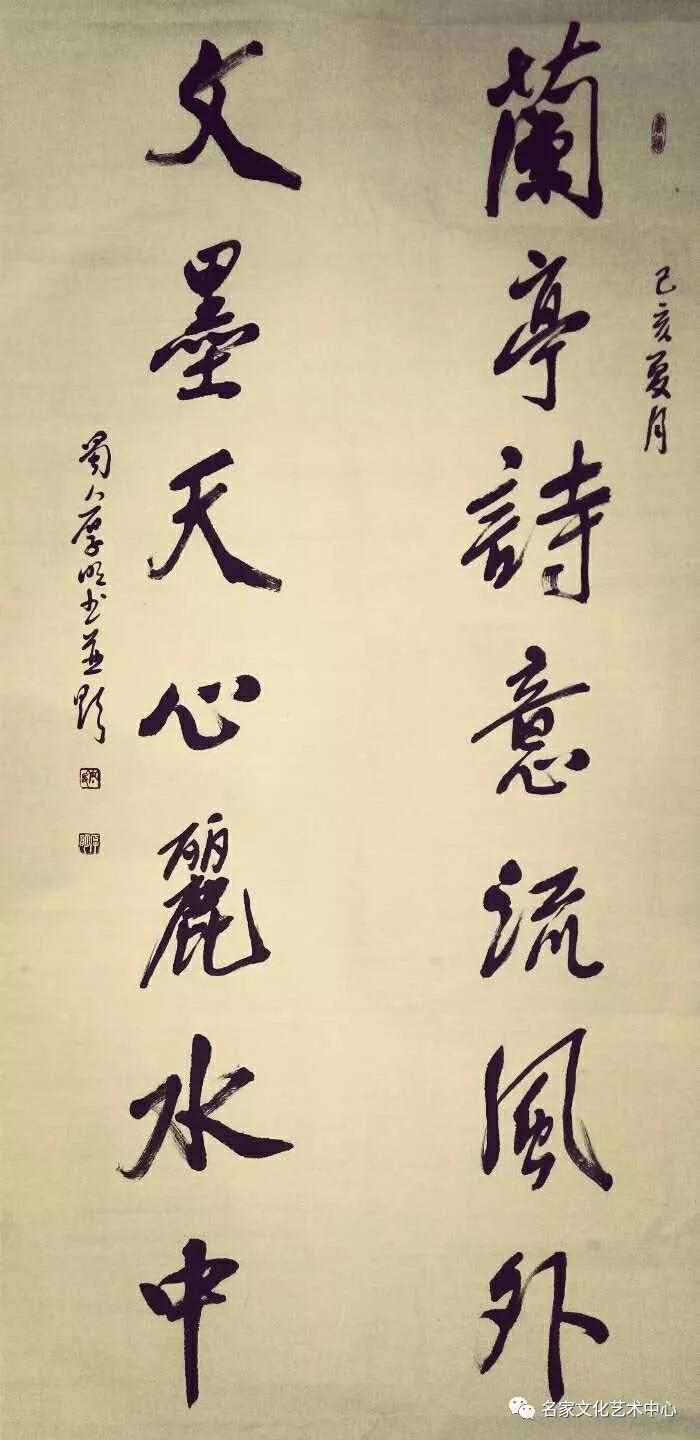 己亥夏月
蘭亭詩意流風外
文墨天心麗水中
蜀人厚明书並题
名家文化艺术中心